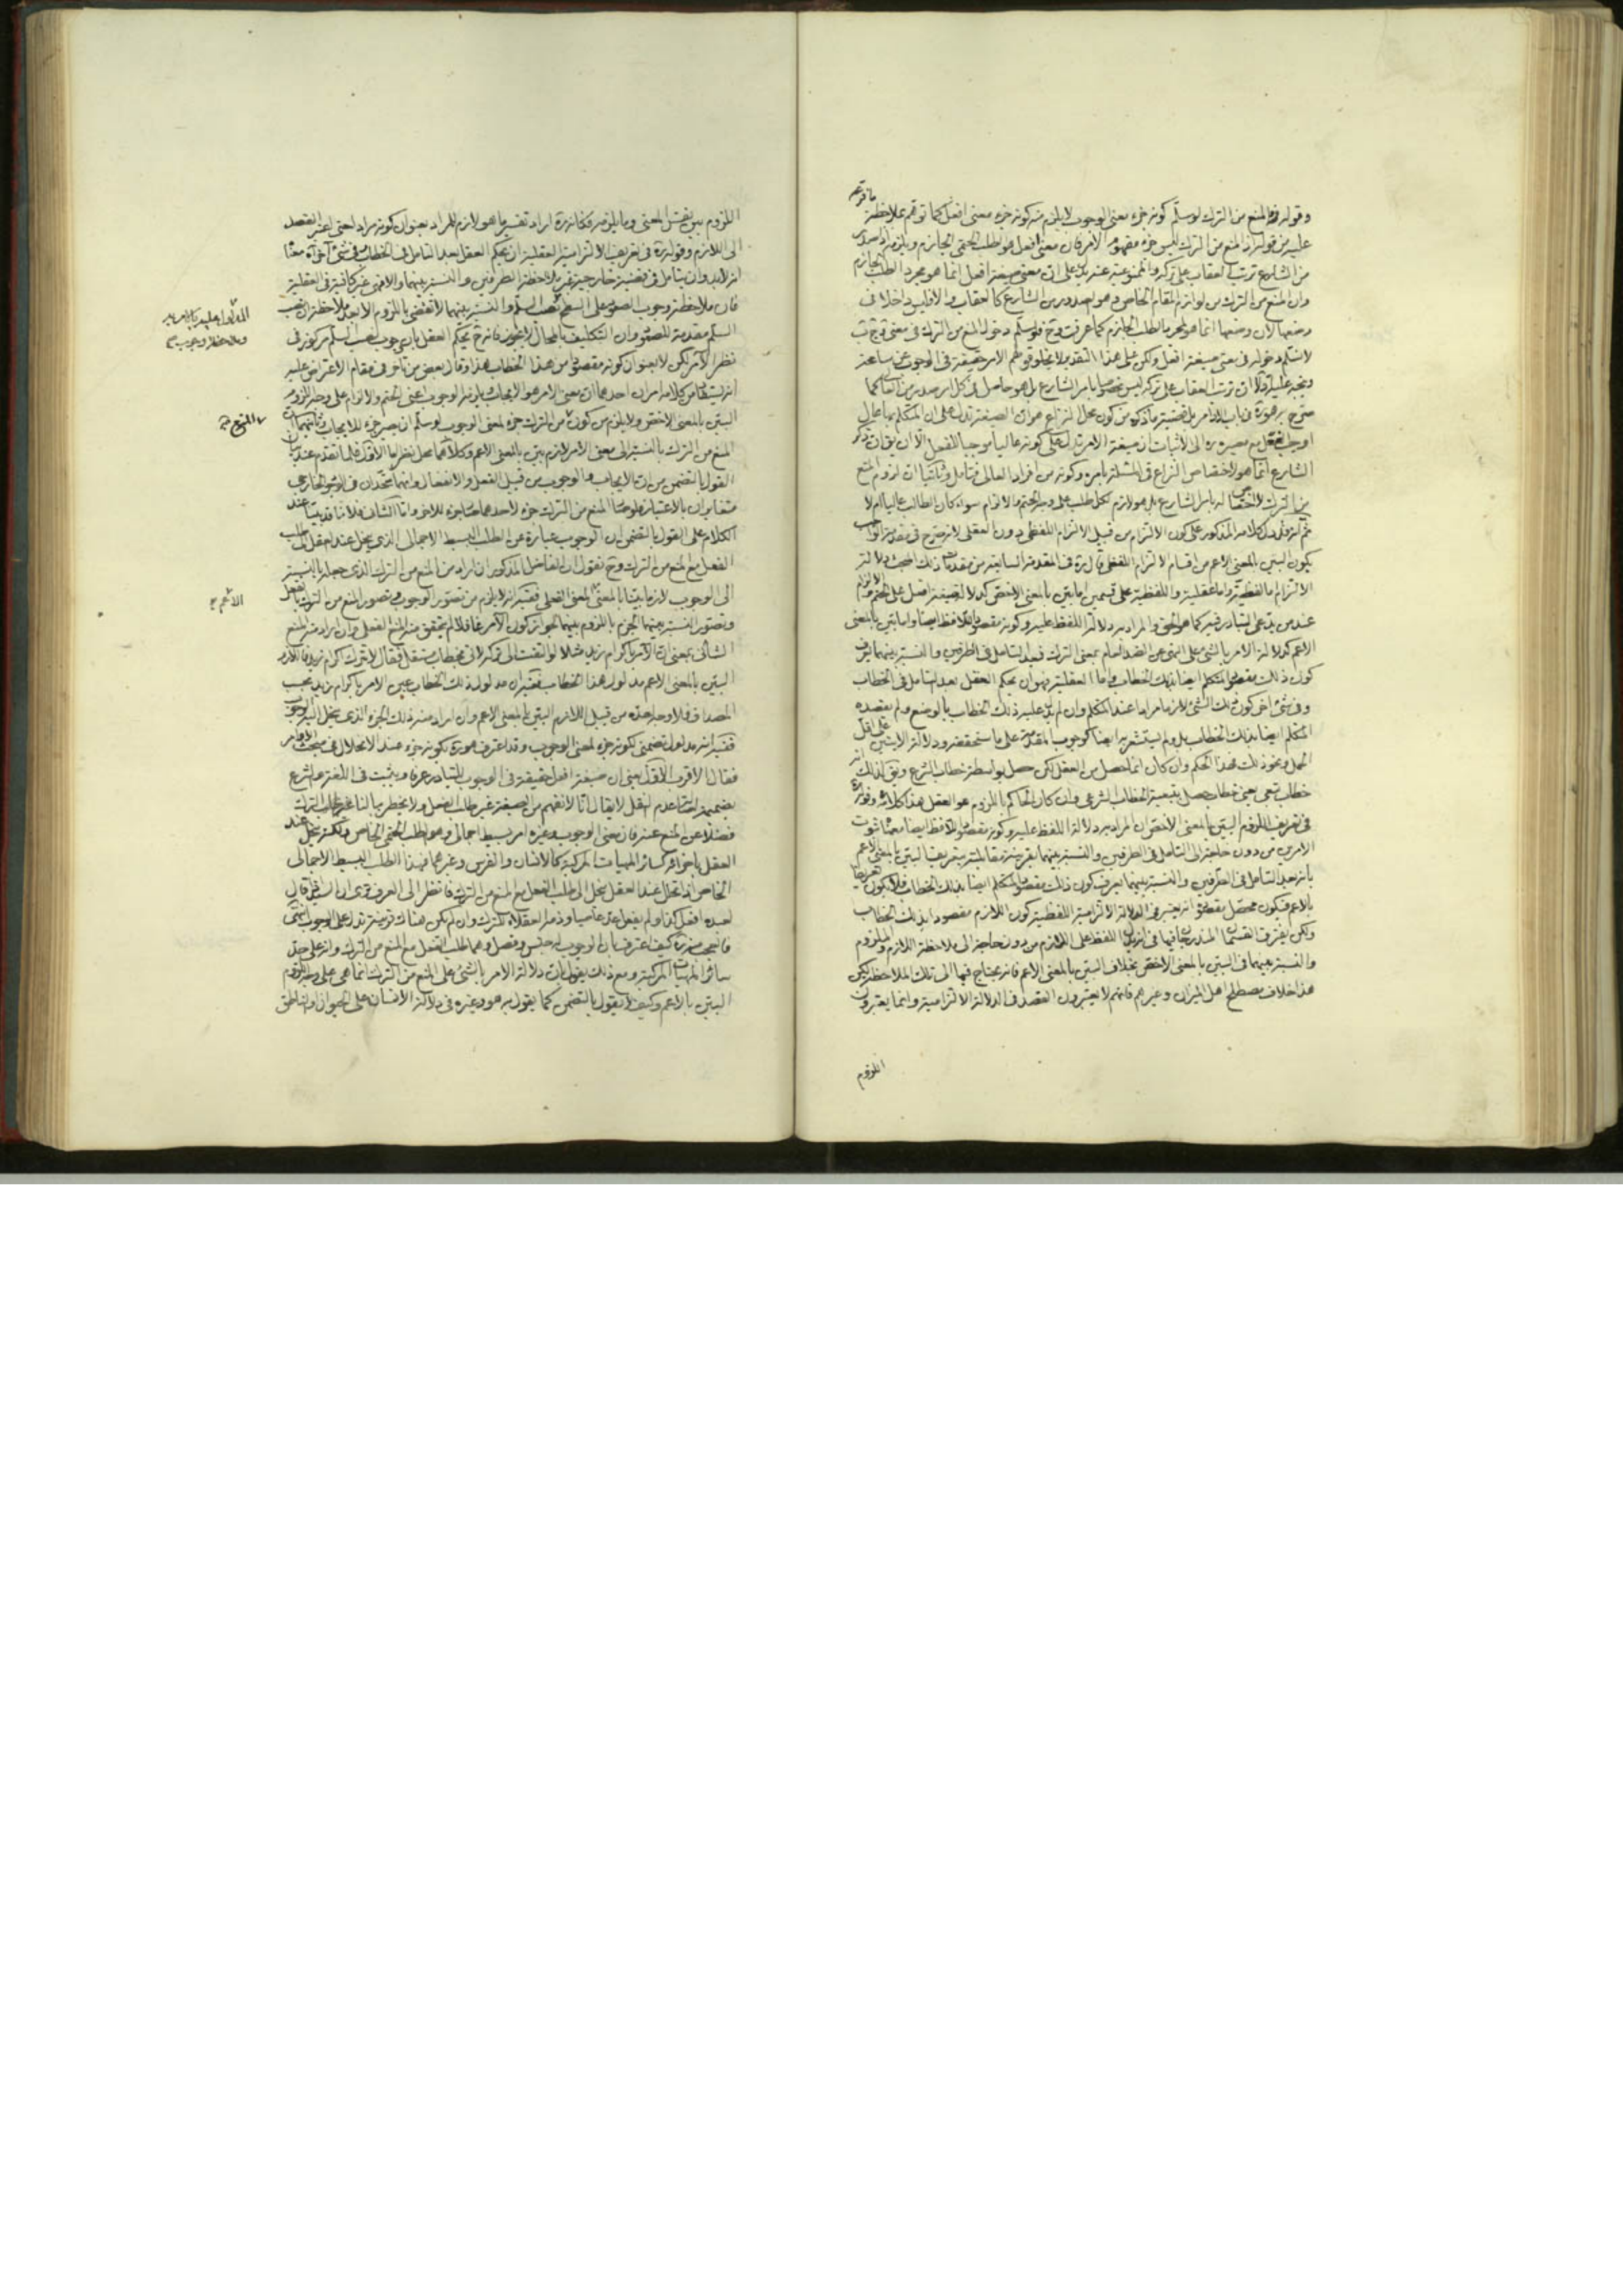 وقوله والمنع من الترك لو سلم كونه جزء معنى الوجوب لا يلزم منه كونه جزء معنى افعل كما توهم بملاحظة
عليه من قوله ان المنع من الترك ليس جزء مفهوم الامر فان معنى افعل هو الطلب الحتمى الجازم ويلزمه اذا صدر
من الشارع ترتب العقاب على تركه والممنوعية عنه يدل على ان معنى صيغة افعل انما هو مجرد الطلب الجازم
وان المنع من الترك من لوازم المقام الخاص وهو صدوره من الشارع كالعقاب والا فليس داخلا فى
وضعها لان وضعها انما هو لمجرد الطلب الجازم كما عرفت وح فلو سلم دخول المنع من الترك فى معنى
لا نسلم دخوله فى معنى صيغة افعل ولكن على هذا التقدير لا يخلو قولهم الامر حقيقة فى الوجوب عن مسامحة
ويتجه عليه اولا ان ترتب العقاب على تركه ليس مخصوصا بامر الشارع بل هو حاصل فى كل امر صدر من العالى كما
صرح به هو ره فى باب الاوامر
الشارع انما هو لاختصاص النزاع فى المسئلة بامره وكونه من افراد العالى فتامل وثانيا ان لزوم المنع
من الترك لا اختصاص له بامر الشارع بل هو لازم لكل طلب على وجه الحتم والالزام سواء كان الطالب عاليا ام لا
ثم انه قد دل كلامه المذكور على كون الالتزام من قبيل الالتزام اللفظى دون العقلى لانه صرح فى مقدمة الواجب
بكون البين بالمعنى الاعم من اقسام الالتزام اللفظى قال ره فى المقدمة السابعة من مقدمات ذلك المبحث دلالة
الالتزام اما لفظية واما عقلية واللفظية على قسمين اما بين بالمعنى الاخص كدلالة صيغة افعل على الحتم والالزام
عند من يدعى التبادر فيه كما هو الحق والمراد به دلالة اللفظ عليه وكونه مقصود اللافظ ايضا واما بين بالمعنى
الاعم كدلالة الامر بالشىء على النهى عن الضد العام بمعنى الترك فبعد التامل فى الطرفين والنسبة بينهما يعرف
كون ذلك مقصود المتكلم ايضا بذلك الخطاب واما العقلية فهو ان يحكم العقل بعد التامل فى الخطاب
وفى شىء اخر كون ذلك الشىء لازما مرادا عند المتكلم وان لم يدل عليه ذلك الخطاب بالوضع ولم يقصده
المتكلم ايضا بذلك الخطاب بل ولم يستشعر به ايضا كوجوب المقدمة على ما سنحققه ودلالة الايتين على اقل
الحمل ونحو ذلك فهذا الحكم وان كان انما حصل من العقل لكن حصل بواسطة خطاب الشرع ونقل لذلك انه
خطاب تبعى يعنى خطاب حصل بتبعية الخطاب الشرعى وان كان الحاكم باللزوم هو العقل هذا كلامه وقوله
فى تعريف اللزوم البين بالمعنى الاخص ان المراد به دلالة اللفظ عليه وكونه مقصود اللافظ ايضا معناه ثبوت
الامرين من دون حاجة الى التامل فى الطرفين والنسبة بينهما بقرينة مقابلته بتعريف البين بالمعنى الاعم
بانه بعد التامل فى الطرفين والنسبة بينهما يعرف كون ذلك مقصود المتكلم ايضا بذلك الخطاب
بالاعم فيكون محصل مقصوده انه يعتبر فى الدلالة الالتزامية اللفظية كون اللازم مقصودا بذلك الخطاب
ولكن يفترق القسمان المندرجان فيها فى انه يدل اللفظ على اللازم من دون حاجة الى ملاحظة اللازم والملزوم
والنسبة بينهما فى البين بالمعنى الاخص بخلاف البين بالمعنى الاعم فانه يحتاج فيها الى تلك الملاحظة لكن
هذا خلاف مصطلح اهل الميزان وغيرهم فانهم لا يعتبرون القصد فى الدلالة الالتزامية وانما يعتبرون
اللزوم
اللزوم بين نفس المعنى وما يلزمه فكانه ره اراد تفسير ما هو لازم للمراد بعنوان كونه مرادا
الى اللازم وقوله ره فى تعريف الالتزامية العقلية ان يحكم العقل بعد التامل فى الخطاب وفى شىء اخر اه معناه
انه لا بد وان يتامل فى قضية خارجية غير ملاحظة الطرفين والنسبة بينهما والا فهى غير كافية فى العقلية
فان ملاحظة وجوب الصعود على السطح ونصب السلم والنسبة بينهما لا تقضى باللزوم الا بعد ملاحظة ان نصب
السلم مقدمة للصعود وان التكليف بالمحال لا يجوز فانه ح يحكم العقل بان وجوب نصب السلم مركوز فى
نظر الآمر لكن لا بعنوان كونه مقصودا من هذا الخطاب هذا وقال بعض من تاخر فى مقام الاعتراض عليه
انه يستفاد من كلامه امران احدهما ان معنى الامر هو الايجاب ويلزمه الوجوب اعنى الحتم والالزام على وجه اللزوم
البين بالمعنى الاخص ولا يلزم من كون من الترك جزء لمعنى الوجوب لو سلم ان يصير جزء للايجاب وثانيهما ان
المنع من الترك بالنسبة الى معنى الامر لازم بين بالمعنى الاعم وكلاهما محل نظر اما الاول فلما تقدم عند بيان
القول بالتضمن من ان الايجاب والوجوب من قبيل الفعل والانفعال وانهما متحدان فى الوجود الخارجى
متغايران بالاعتبار فلو صار المنع من الترك جزء لاحدهما صار جزء للاخر واما الثانى فلانا قد بينا عند
الكلام على القول بالتضمن ان الوجوب عبارة عن الطلب البسيط الاجمالى الذى ينحل عند العقل الى طلب
الفعل مع المنع من الترك وح نقول ان الفاضل المذكور ان اراد من المنع من الترك الذى جعله بالنسبة
الى الوجوب لازما بينا بالمعنى المعنى الفعلى ففيه انه لا يلزم من تصور الوجوب وتصور المنع من الترك بالفعل
وتصور النسبة بينهما الجزم باللزوم بينهما لجواز كون الآمر غافلا فلم يتحقق منه المنع الفعلى وان اراد منه المنع
الشانى بمعنى ان الآمر باكرام زيد مثلا لو التفت الى تركه لاتى بخطاب مستقل فقال لا تترك اكرام زيد فاللازم
البين بالمعنى الاعم مدلول هذا الخطاب ففيه ان مدلول ذلك الخطاب عين الامر باكرام زيد بحسب
المصداق فلا وجه لعده من قبيل اللازم البين بالمعنى الاعم وان اراد منه ذلك الجزء الذى ينحل اليه الوجوب
ففيه انه مدلول تضمنى لكونه جزء لمعنى الوجوب وقد اعترف هو ره بكونه جزء عند الانحلال فى مبحث الاوامر
فقال الاقرب الاول يعنى ان صيغة افعل حقيقة فى الوجوب للتبادر عرفا ويثبت فى اللغة والشرع
بضميمة اصالة عدم النقل لا يقال انا لا نفهم من الصيغة غير طلب الفعل ولا يخطر ببالنا الترك
فضلا عن المنع عنه فان معنى الوجوب وغيره امر بسيط اجمالى وهو الطلب الحتمى الخاص ولكنه ينحل عند
العقل باجزاء كسائر المهيات المركبة كالانسان والفرس وغيرهما فهذا الطلب البسيط الاجمالى
الخاص اذا تحلل عند العقل ينحل الى طلب الفعل مع المنع من الترك فانظر الى العرف ترى ان السيد اذا قال
لعبده افعل كذا ولم يفعل عد عاصيا وذمه العقلاء للترك وان لم يكن هناك قرينة تدل على الوجوب انتهى
فالعجب منه ره كيف اعترف بان الوجوب له جنس وفصل وهما طلب الفعل مع المنع من الترك وانه على حد
سائر المهيات المركبة ومع ذلك يقول بان دلالة الامر بالشىء على المنع من الترك انما هى على وجه اللزوم
البين بالاعم وكيف لا يقول بالتضمن كما يقول به هو وغيره فى دلالة الانسان على الحيوان والناطق
المنع صح
الاعم صح